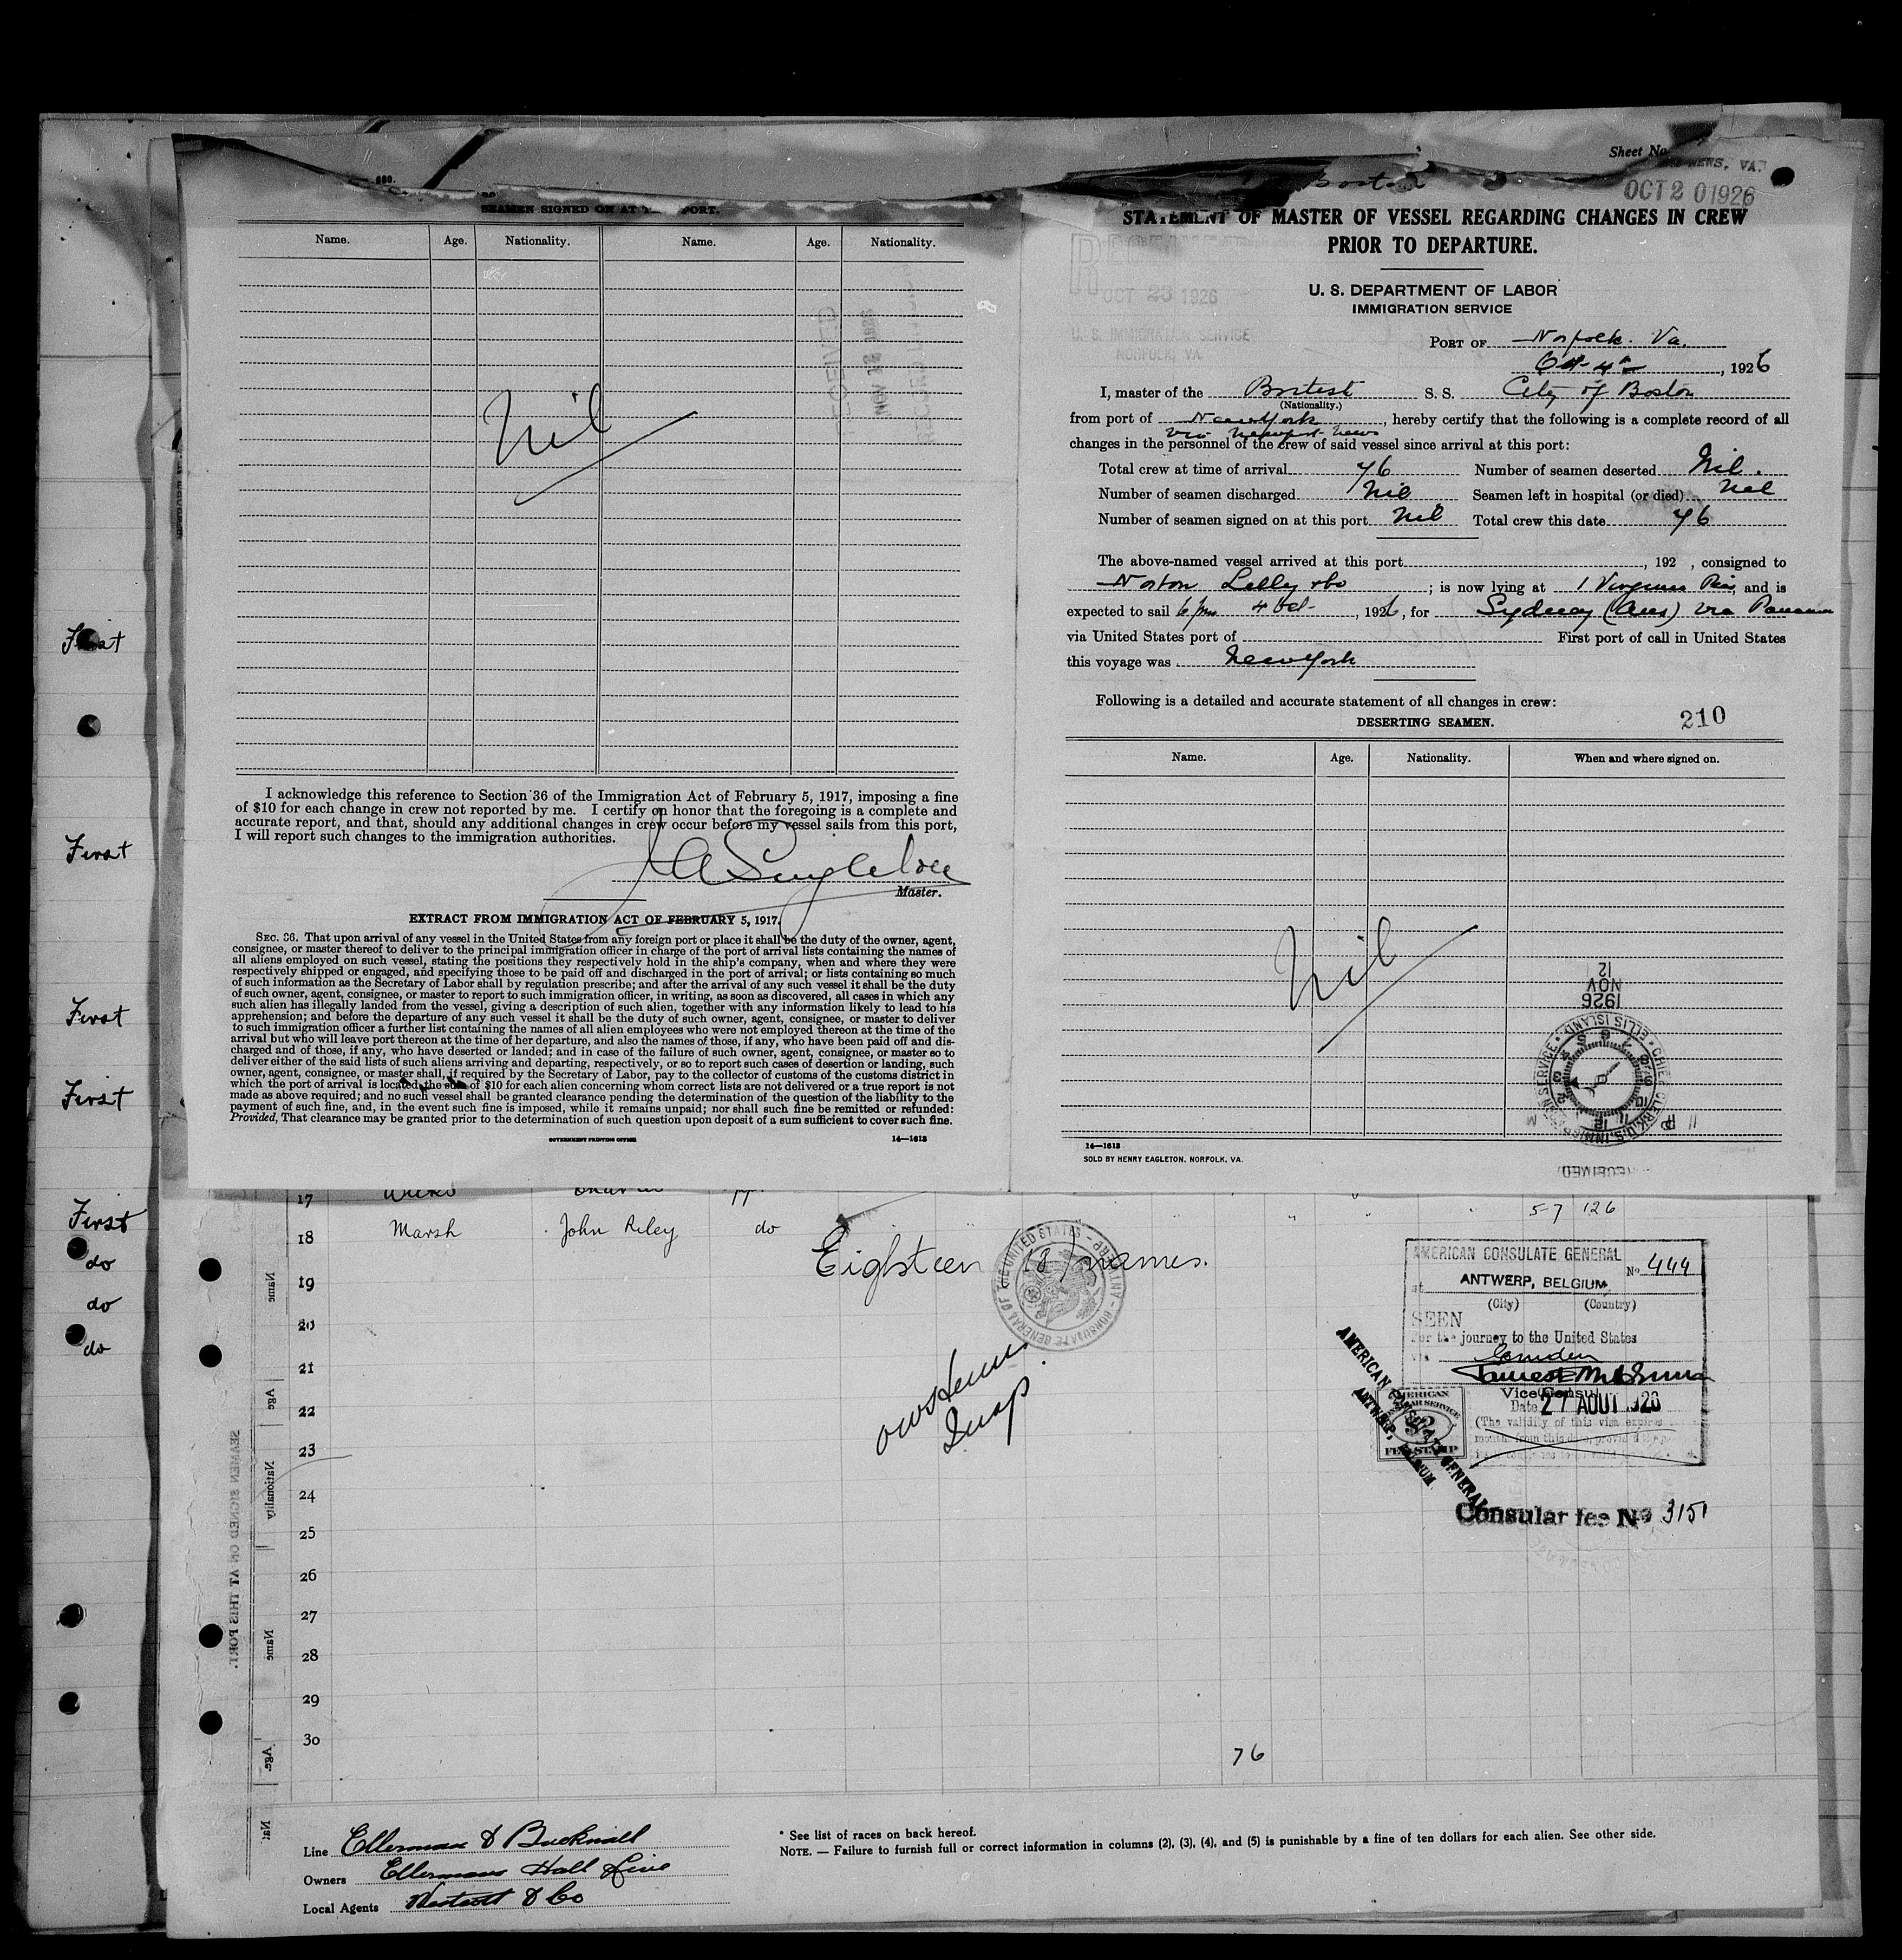 Sheet No.
NEWS, VA.
OCT 20 1926
Boston
SEAMEN SIGNED ON AT THIS PORT.
Name. Age. Nationality. Name. Age. Nationality.
Nil
I acknowledge this reference to Section 36 of the Immigration Act of February 5, 1917, imposing a fine
of $10 for each change in crew not reported by me. I certify on honor that the foregoing is a complete and
accurate report, and that, should any additional changes in crew occur before my vessel sails from this port,
I will report such changes to the immigration authorities.
J A Singleton
Master.
EXTRACT FROM IMMIGRATION ACT OF FEBRUARY 5, 1917.
SEC. 36. That upon arrival of any vessel in the United States from any foreign port or place it shall be the duty of the owner, agent,
consignee, or master thereof to deliver to the principal immigration officer in charge of the port of arrival lists containing the names of
all aliens employed on such vessel, stating the positions they respectively hold in the ship's company, when and where they were
respectively shipped or engaged, and specifying those to be paid off and discharged in the port of arrival; or lists containing so much
of such information as the Secretary of Labor shall by regulation prescribe; and after the arrival of any such vessel it shall be the duty
of such owner, agent, consignee, or master to report to such immigration officer, in writing, as soon as discovered, all cases in which any
such alien has illegally landed from the vessel, giving a description of such alien, together with any information likely to lead to his
apprehension; and before the departure of any such vessel it shall be the duty of such owner, agent, consignee, or master to deliver
to such immigration officer a further list containing the names of all alien employees who were not employed thereon at the time of the
arrival but who will leave port thereon at the time of her departure, and also the names of those, if any, who have been paid off and dis-
charged and of those, if any, who have deserted or landed; and in case of the failure of such owner, agent, consignee, or master so to
deliver either of the said lists of such aliens arriving and departing, respectively, or so to report such cases of desertion or landing, such
owner, agent, consignee, or master shall, if required by the Secretary of Labor, pay to the collector of customs of the customs district in
which the port of arrival is located the sum of $10 for each alien concerning whom correct lists are not delivered or a true report is not
made as above required; and no such vessel shall be granted clearance pending the determination of the question of the liability to the
payment of such fine, and, in the event such fine is imposed, while it remains unpaid; nor shall such fine be remitted or refunded:
Provided, That clearance may be granted prior to the determination of such question upon deposit of a sum sufficient to cover such fine.
GOVERNMENT PRINTING OFFICE 14—1613
STATEMENT OF MASTER OF VESSEL REGARDING CHANGES IN CREW
PRIOR TO DEPARTURE.
U. S. DEPARTMENT OF LABOR
IMMIGRATION SERVICE
OCT 23 1926
U. S. IMMIGRATION SERVICE
NORFOLK, VA.
PORT OF Norfolk. Va.
Oct 4th, 1926
I, master of the British S. S. City of Boston
(Nationality.)
from port of New York, hereby certify that the following is a complete record of all
via Newport News
changes in the personnel of the crew of said vessel since arrival at this port:
Total crew at time of arrival 76 Number of seamen deserted Nil.
Number of seamen discharged Nil Seamen left in hospital (or died) Nil
Number of seamen signed on at this port Nil Total crew this date 76
The above-named vessel arrived at this port, 192 , consigned to
Norton Lilly & Co; is now lying at 1 Virginia Pier, and is
expected to sail 6 pm 4 Oct, 1926, for Sydney (Aus) via Panama
via United States port of First port of call in United States
this voyage was New York
Following is a detailed and accurate statement of all changes in crew:
DESERTING SEAMEN.
210
Name. Age. Nationality. When and where signed on.
Nil
12
NOV
1926
CHIEF CLERK, U. S. IMMIGRATION SERVICE • ELLIS ISLAND
14—1613
SOLD BY HENRY EAGLETON, NORFOLK, VA.
RECEIVED
First
First
First
First
First
do
do
do
17
57 126
18 Marsh John Riley do
Eighteen (18) names.
CONSULATE GENERAL OF THE UNITED STATES - ANTWERP
19
20
21
22
23
24
25
26
27
28
29
30
76
AMERICAN CONSULATE GENERAL
No. 444
at ANTWERP, BELGIUM
(City) (Country)
SEEN
For the journey to the United States
via
Vice Consul
Date 27 AOUT 1926
(The validity of this visa expires
AMERICAN CONSULAR SERVICE
2
FEE STAMP
AMERICAN CONSULATE GENERAL
ANTWERP, BELGIUM
Consular fee No 3151
SEAMEN SIGNED ON AT THIS PORT.
Name
Age
Nationality
Name
Age
Nat
Line Ellerman & Bucknall
Owners Ellermans Hall Line
Local Agents
* See list of races on back hereof.
NOTE. — Failure to furnish full or correct information in columns (2), (3), (4), and (5) is punishable by a fine of ten dollars for each alien. See other side.